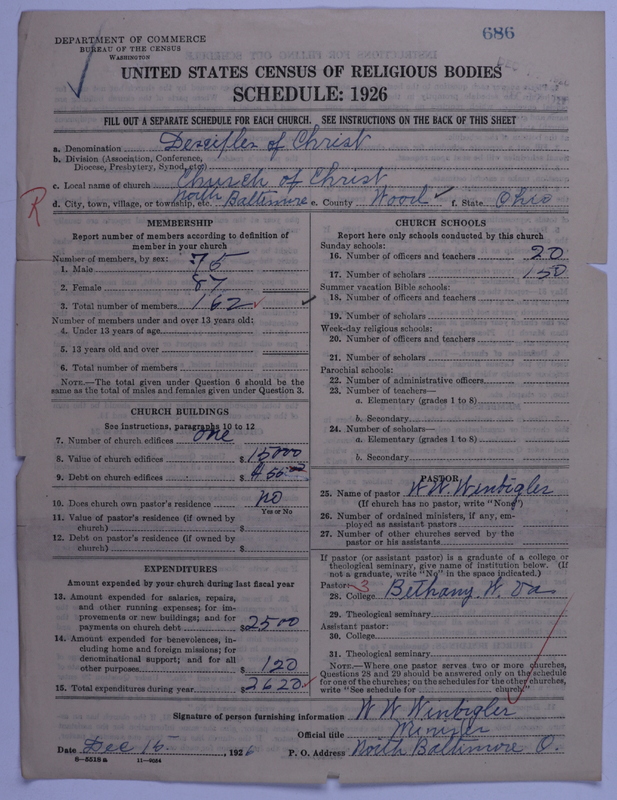 686
DEPARTMENT OF COMMERCE
BUREAU OF THE CENSUS
WASHINGTON
UNITED STATES CENSUS OF RELIGIOUS BODIES
SCHEDULE: 1926
FILL OUT A SEPARATE SCHEDULE FOR EACH CHURCH. SEE INSTRUCTIONS ON THE BACK OF THIS SHEET
a. Denomination Desciples of Christ
b. Division (Association, Conference,
Diocese, Presbytery, Synod, etc.)
c. Local name of church Church of Christ
d. City, town, village, or township, etc. North Baltimore e. County Wood f. State Ohio
R
MEMBERSHIP
Report number of members according to definition of
member in your church
Number of members, by sex:
1. Male 75
2. Female 87
3. Total number of members 162
Number of members under and over 13 years old:
4. Under 13 years of age
5. 13 years old and over
6. Total number of members
NOTE.—The total given under Question 6 should be the
same as the total of males and females given under Question 3.
CHURCH BUILDINGS
See instructions, paragraphs 10 to 12
7. Number of church edifices one
8. Value of church edifices $ 15000
9. Debt on church edifices $
10. Does church own pastor's residence no
Yes or No
11. Value of pastor's residence (if owned by
church) $
12. Debt on pastor's residence (if owned by
church) $
EXPENDITURES
Amount expended by your church during last fiscal year
13. Amount expended for salaries, repairs,
and other running expenses; for im-
provements or new buildings; and for
payments on church debt $ 2500
14. Amount expended for benevolences, in-
cluding home and foreign missions; for
denominational support; and for all
other purposes $ 120
15. Total expenditures during year $ 2620
CHURCH SCHOOLS
Report here only schools conducted by this church
Sunday schools:
16. Number of officers and teachers 20
17. Number of scholars 150
Summer vacation Bible schools:
18. Number of officers and teachers
19. Number of scholars
Week-day religious schools:
20. Number of officers and teachers
21. Number of scholars
Parochial schools:
22. Number of administrative officers
23. Number of teachers—
a. Elementary (grades 1 to 8)
b. Secondary
24. Number of scholars—
a. Elementary (grades 1 to 8)
b. Secondary
PASTOR
25. Name of pastor W. W. Winbigler
(If church has no pastor, write "None")
26. Number of ordained ministers, if any, em-
ployed as assistant pastors
27. Number of other churches served by the
pastor or his assistants
If pastor (or assistant pastor) is a graduate of a college or
theological seminary, give name of institution below. (If
not a graduate, write "No" in the space indicated.)
Pastor: 3
28. College Bethany W. Va
29. Theological seminary
Assistant pastor:
30. College
31. Theological seminary
NOTE.—Where one pastor serves two or more churches,
Questions 28 and 29 should be answered only on the schedule
for one of the churches; on the schedules for the other churches,
write "See schedule for church"
Signature of person furnishing information W W Winbigler
Official title Minister
Date Dec 15, 1926 P. O. Address North Baltimore O.
8—5518a 11—8034